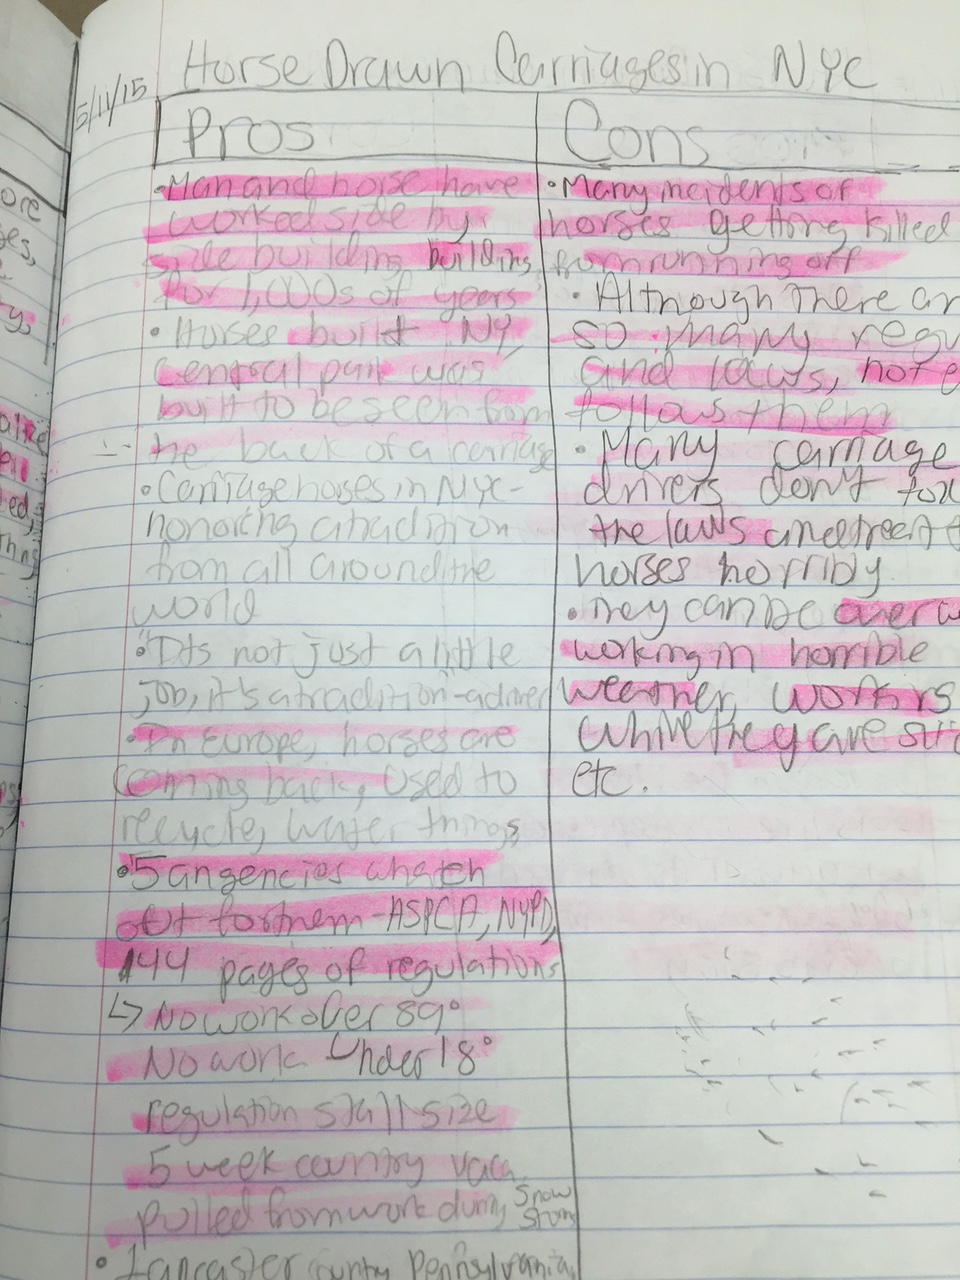 5/11/15
Horse Drawn Carriages in NYC
Pros
•Man and horse have
worked side by
side building building
for 1,000s of years
• Horses built NY,
Central park was
built to be seen from
the back of a carriage
• Carriage horses in NYC-
honoring a tradition
from all around the
world
• "Its not just a little
job, it's a tradition"-a driver
• In Europe, horses are
coming back, used to
recycle, water things
• 5 angencies whatch
out for them - ASPCA, NYPD,
144 pages of regulations
↳ No work over 89°
No work Under 18°
regulation stall size
5 week country vaca
pulled from work during snow
storms
• Lancaster county Pennsylvania,
Cons
• Many incidents of
horses getting killed
from running off
• Although there ar
so many regu
and laws, not e
follows them
• Many carriage
drivers don't fol
the laws and treat t
horses horribly
• They can be over w
working in horrible
weather, works
while they are
etc.
ore